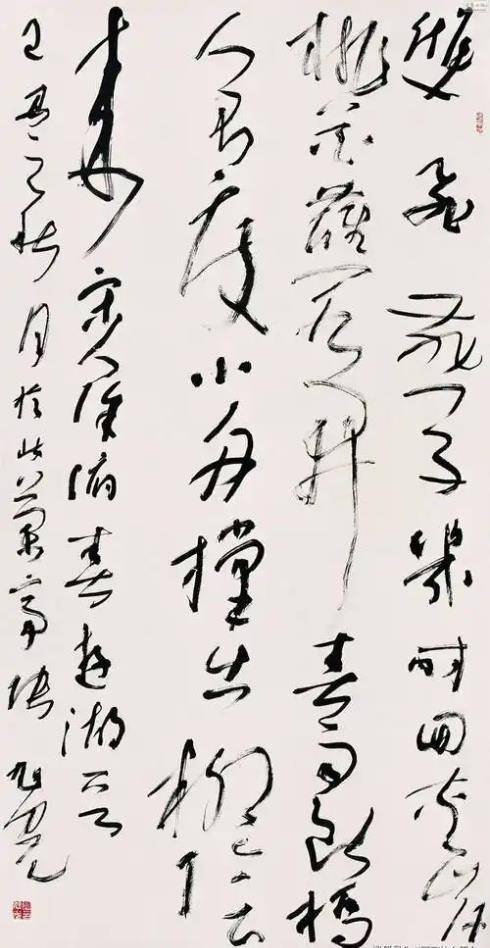 雙飛燕子幾時回夾岸
桃花蘸水開春雨斷橋
人不度小舟撐出柳陰
來 宋人徐俯春遊湖
壬辰之秋月於北蘭亭張旭光